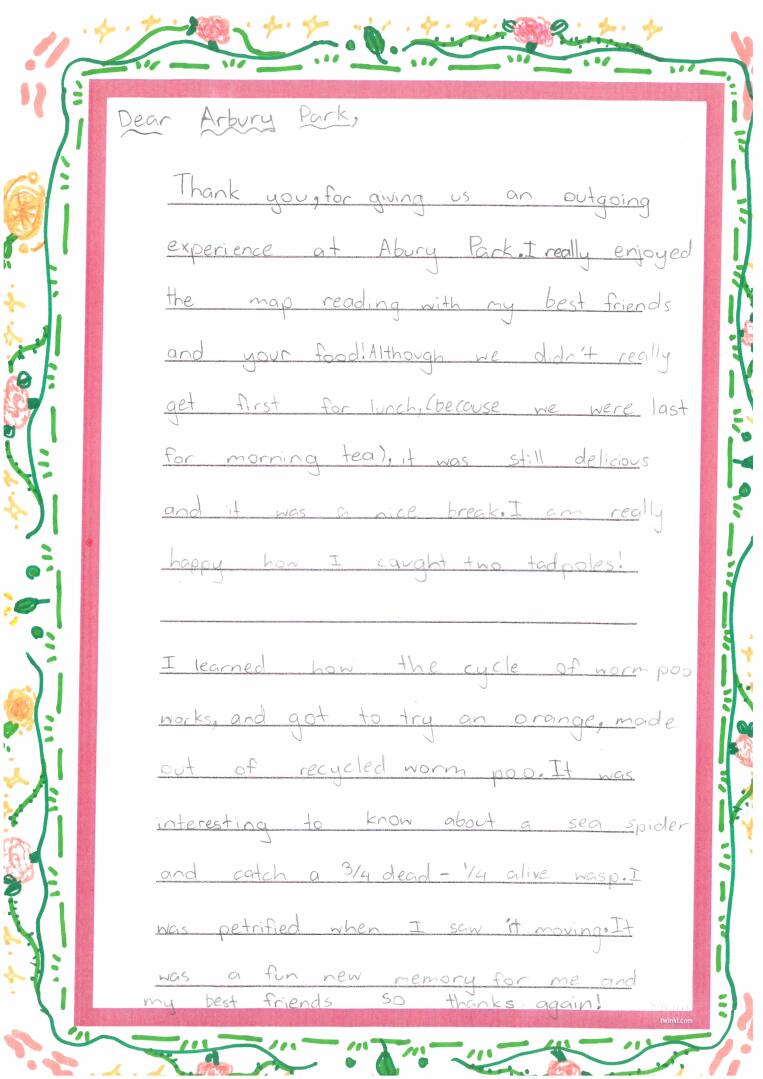 Dear Arbury Park,
Thank you, for giving us an outgoing
experience at Abury Park. I really enjoyed
the map reading with my best friends
and your food! Although we didn't really
get first for lunch, (because we were last
for morning tea), it was still delicious
and it was a nice break. I am really
happy how I caught two tadpoles!
I learned how the cycle of worm poo
works, and got to try an orange, made
out of recycled worm poo. It was
interesting to know about a sea spider
and catch a 3/4 dead - 1/4 alive wasp. I
was petrified when I saw it moving. It
was a fun new memory for me and
my best friends so thanks again!
twinkl.com